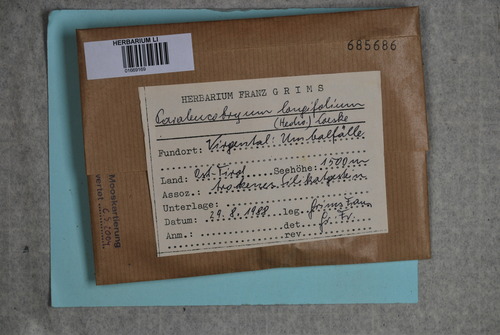 HERBARIUM LI
685686
HERBARIUM FRANZ GRIMS
Paraleucobryum longifolium
(Hedw.) Loeske
Fundort: Virgental: Umbalfälle
Land: Ost-Tirol Seehöhe: 1500 m
Assoz.: trockenes Silikatgestein
Unterlage:
Datum: 29.8.1988 leg. Grims Franz
Anm.: det. Gr. Fr.
rev.
Mooskartierung